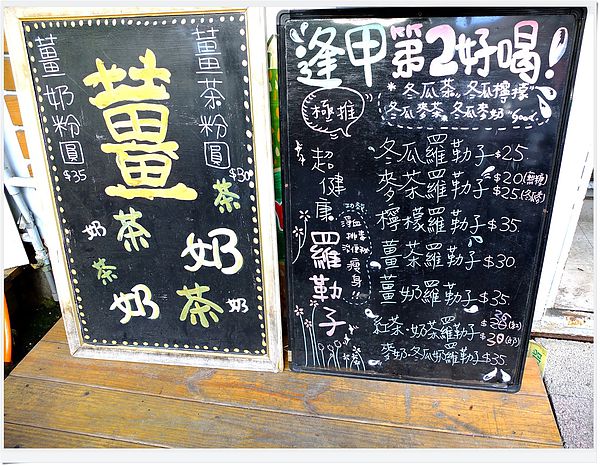 薑茶粉圓
$30
薑
薑奶粉圓
$35
奶
茶
茶
奶
茶
奶
茶
奶
逢甲第2好喝!
極推
* 冬瓜茶,冬瓜檸檬
冬瓜麥茶,冬瓜麥奶 Good.
超健康羅勒子
冬瓜羅勒子 $25
麥茶羅勒子 $20(無糖)
$25(冬瓜)
檸檬羅勒子 $35
薑茶羅勒子 $30
薑奶羅勒子 $35
紅茶·奶茶羅勒子
$30(奶)
麥奶·冬瓜奶羅勒子 $35
功效
排毒
瘦身!!